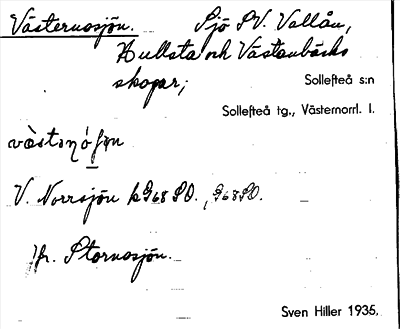 Västernosjön. Sjö SV. Vallån,
Hullsta och Västanbäcks
skogar;
Sollefteå s:n
Sollefteå tg., Västernorrl. l.
V. Norrsjön k G68 SO., G68SO.
jfr. Stornosjön.
Sven Hiller 1935.